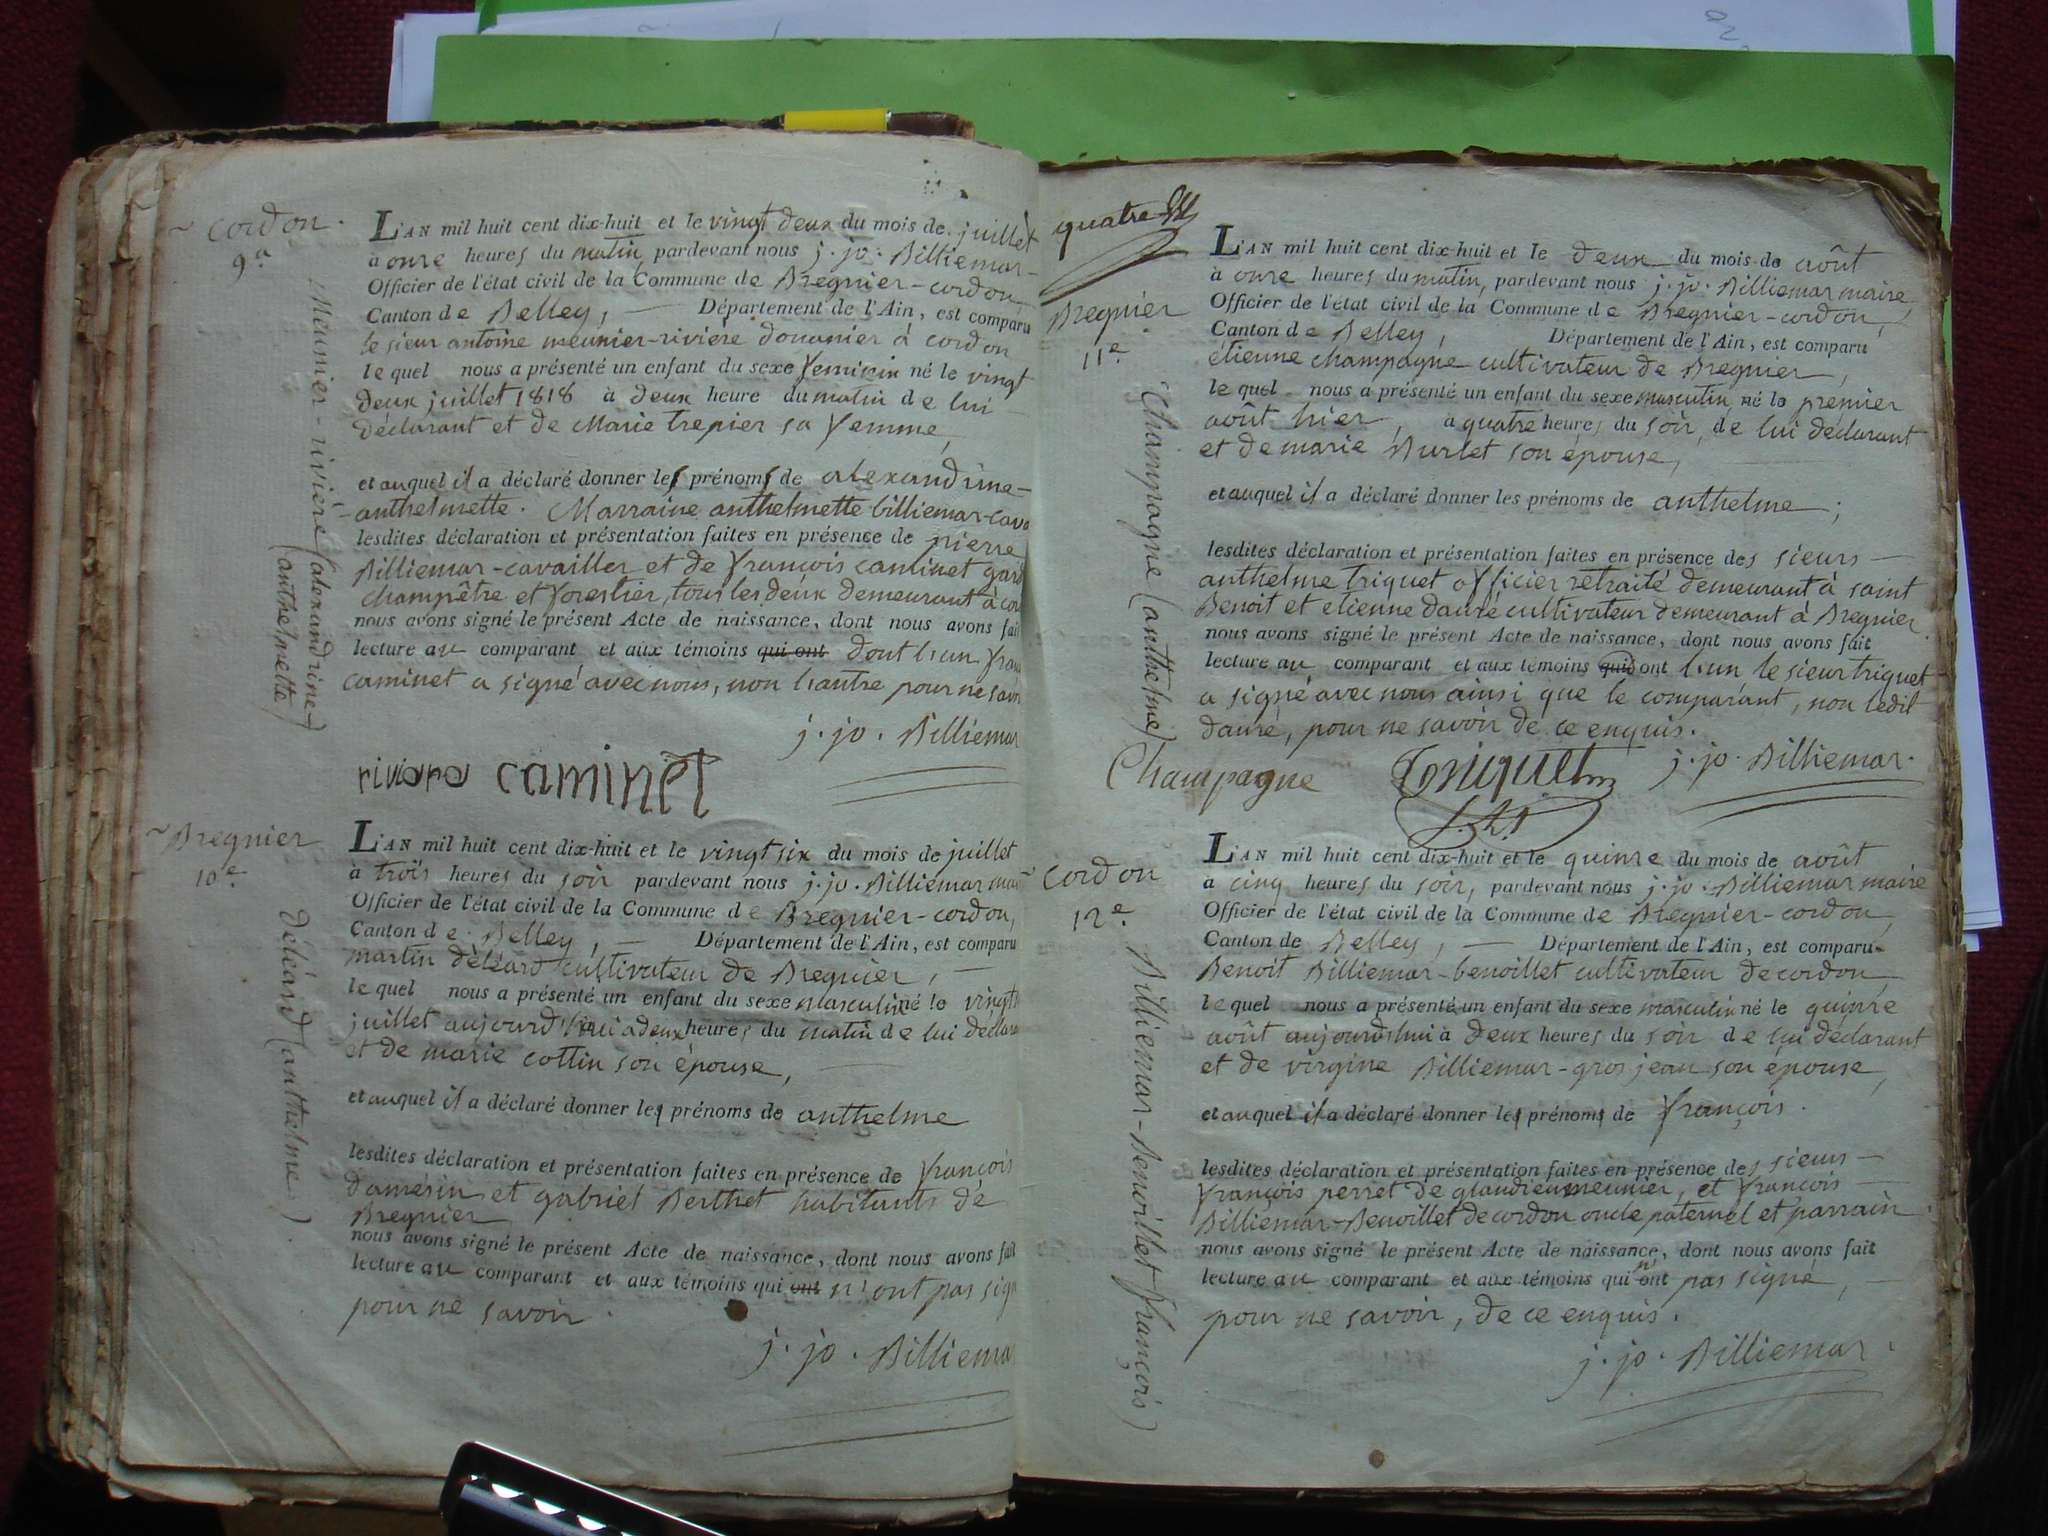 cordon.
9e
Meunier-rivière (alexandrine-
(anthelmette)
L'AN mil huit cent dix-huit et le vingt deux du mois de juillet
à onze heures du matin, pardevant nous j. jo. Billiemar-
Officier de l'état civil de la Commune de Bregnier-cordon
Canton de Belley, — Département de l'Ain, est comparu
le sieur antoine meunier-rivière douanier à cordon
lequel nous a présenté un enfant du sexe feminin né le vingt
deux juillet 1818 à deux heure du matin de lui
déclarant et de Marie trepier sa femme,
et auquel il a déclaré donner les prénoms de alexandrine-
-anthelmette. Marraine anthelmette billiemar-cava
lesdites déclaration et présentation faites en présence de pierre
Billiemar-cavailler et de françois caminet gard
champêtre et forestier, tous les deux demeurant à cor
nous avons signé le présent Acte de naissance, dont nous avons fait
lecture au comparant et aux témoins qui ont dont l'un fran
caminet a signé avec nous, non l'autre pour ne savoi
j. jo. Billiemar
caminet
Bregnier
10e
Déléard (anthelme)
L'AN mil huit cent dix-huit et le vingt six du mois de juillet
à trois heures du soir pardevant nous j. jo. Billiemar mai
Officier de l'état civil de la Commune de Bregnier-cordon,
Canton de Belley, — Département de l'Ain, est comparu
martin déléard cultivateur de Bregnier, —
lequel nous a présenté un enfant du sexe masculin né le vingt
juillet aujourd'hui à deux heures du matin de lui déclara
et de marie cottin son épouse,
et auquel il a déclaré donner les prénoms de anthelme
lesdites déclaration et présentation faites en présence de françois
damesin et gabriel Berthet habitants de
Bregnier
nous avons signé le présent Acte de naissance, dont nous avons fait
lecture au comparant et aux témoins qui ont n'ont pas sign
pour ne savoir.
j. jo. Billiemar
quatre
Bregnier
11e
Champagne (anthelme)
L'AN mil huit cent dix-huit et le deux du mois de août
à onze heures du matin, pardevant nous j. jo. Billiemar maire,
Officier de l'état civil de la Commune de Bregnier-cordon,
Canton de Belley, Département de l'Ain, est comparu
étienne champagne cultivateur de Bregnier,
lequel nous a présenté un enfant du sexe masculin né le premier
août hier, à quatre heures du soir, de lui déclarant
et de marie Burlet son épouse,
et auquel il a déclaré donner les prénoms de anthelme;
lesdites déclaration et présentation faites en présence des sieurs —
anthelme triquet officier retraité demeurant à saint
Benoit et etienne dauré cultivateur demeurant à Bregnier.
nous avons signé le présent Acte de naissance, dont nous avons fait
lecture au comparant et aux témoins qui ont l'un le sieur triquet
a signé avec nous ainsi que le comparant, non ledit
dauré, pour ne savoir de ce enquis.
j. jo. Billiemar.
Champagne Triquet
cordon
12e
Billiemar-Benoillet (françois)
L'AN mil huit cent dix-huit et le quinze du mois de août
à cinq heures du soir, pardevant nous j. jo. Billiemar maire
Officier de l'état civil de la Commune de Bregnier-cordon,
Canton de Belley, — Département de l'Ain, est comparu
Benoit Billiemar-benoillet cultivateur de cordon,
lequel nous a présenté un enfant du sexe masculin né le quinze
août aujourd'hui à deux heures du soir de lui déclarant
et de virgine Billiemar-gros jean son épouse,
et auquel il a déclaré donner les prénoms de françois.
lesdites déclaration et présentation faites en présence des sieurs —
françois perret de glandieu meunier, et françois —
Billiemar-Benoillet de cordon oncle paternel et parrain
nous avons signé le présent Acte de naissance, dont nous avons fait
lecture au comparant et aux témoins qui n'ont pas signé, —
pour ne savoir, de ce enquis.
j. jo. Billiemar.